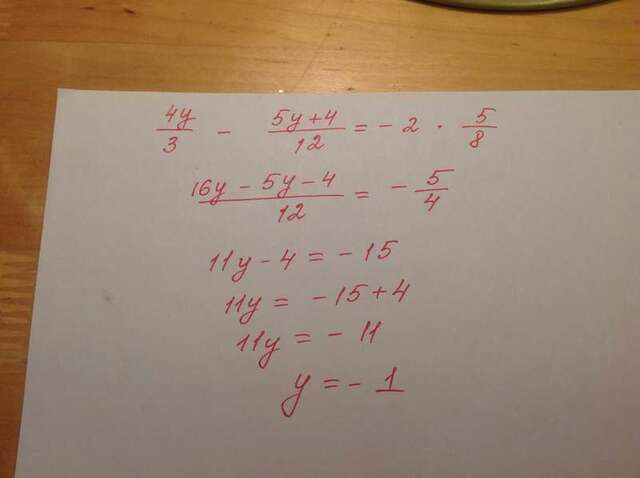 4y/3 - (5y+4)/12 = -2 · 5/8
(16y-5y-4)/12 = -5/4
11y-4 = -15
11y = -15+4
11y = -11
y = -1